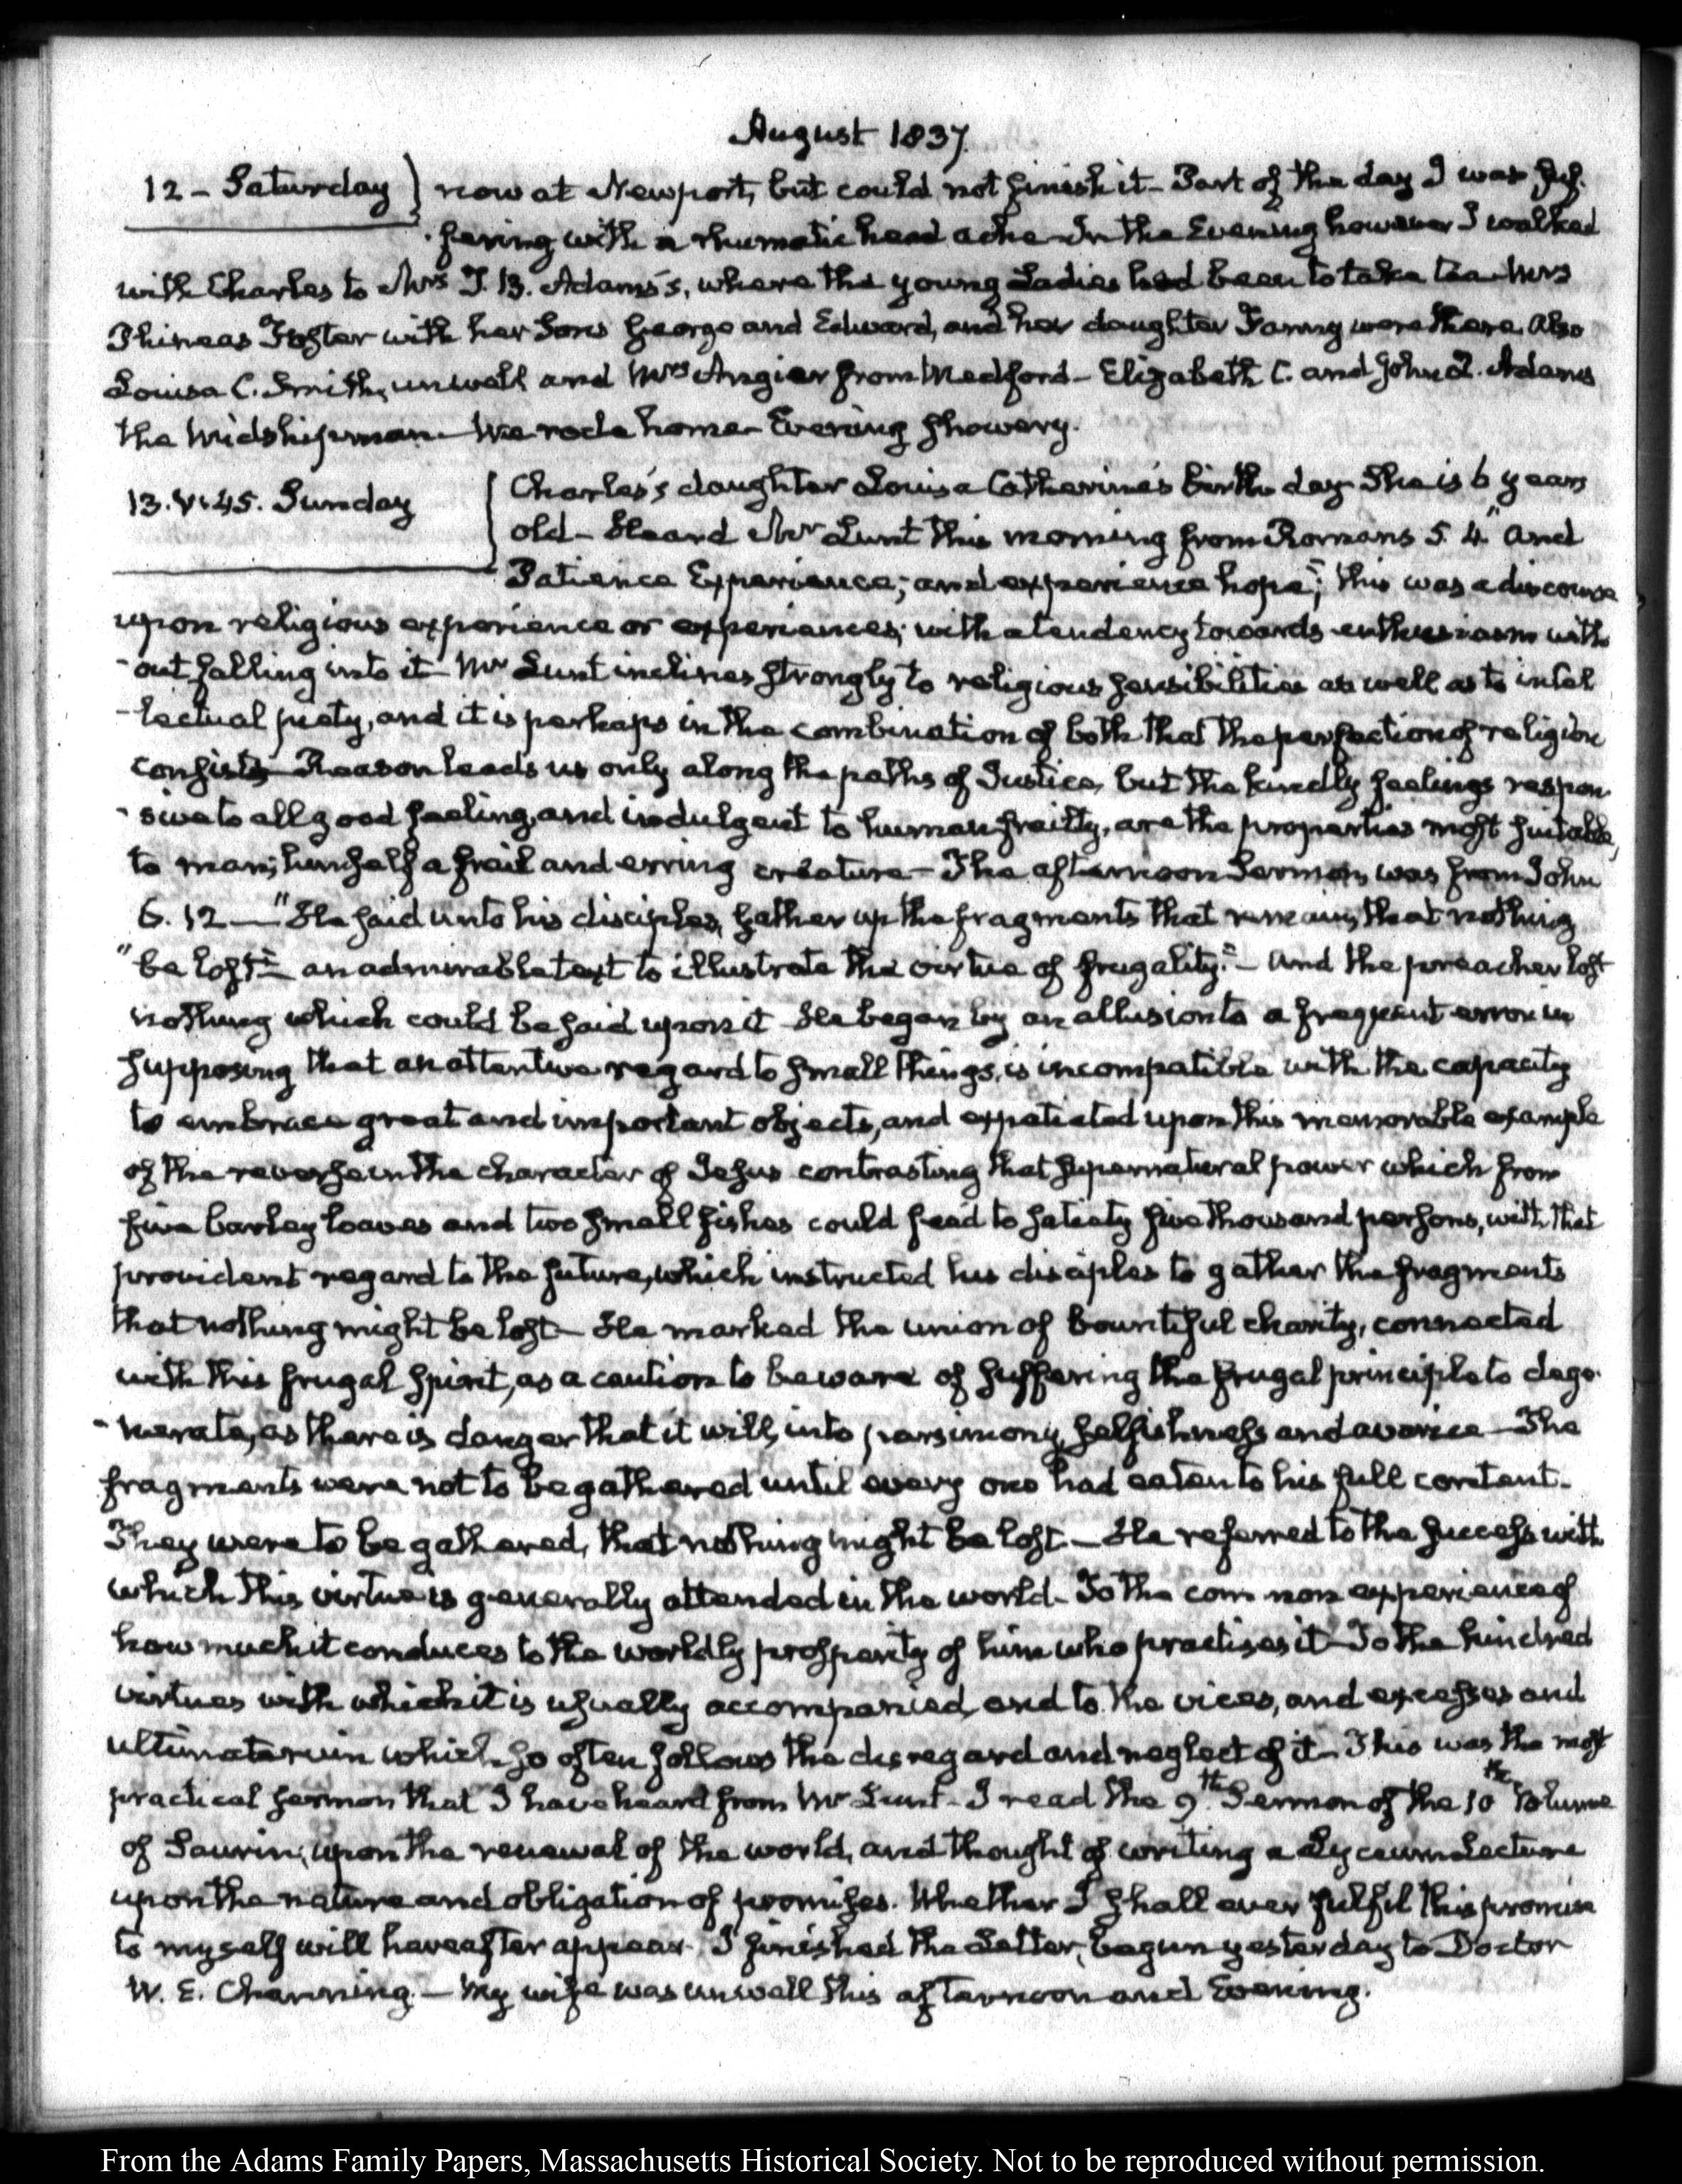 August 1837.
12 - Saturday } now at Newport, but could not finish it - Part of the day I was suf-
-fering with a rhumatic head ache - In the Evening however I walked
with Charles to Mrs T. B. Adams's, where the young Ladies had been to take tea - Mrs
Phineas Foster with her Sons George and Edward, and her daughter Fanny were there. Also
Louisa C. Smith, unwell and Mrs Angier from Medford - Elizabeth C. and John Q. Adams
the Midshipman - We rode home - Evening showery.
13. V:45. Sunday { Charles's daughter Louisa Catherine's birth day She is 6 years
old - Heard Mr Lunt this morning from Romans 5. 4. "And
Patience Experience; and experience hope"; this was a discourse
upon religious experience or experiences; with a tendency towards enthusiasm with
-out falling into it - Mr Lunt inclines strongly to religious sensibilities as well as to intel
-lectual piety, and it is perhaps in the combination of both that the perfection of religion
consists - Reason leads us only along the paths of Justice, but the kindly feelings respon-
-sive to all good feeling, and indulgent to human frailty, are the properties most suitable,
to man; himself a frail and erring creature - The afternoon Sermon, was from John
6. 12 - "He said unto his disciples, Gather up the fragments that remain, that nothing
"be lost" - an admirable text to illustrate the virtue of frugality. - And the preacher lost
nothing which could be said upon it - He began by an allusion to a frequent error in
supposing that an attentive regard to small things, is incompatible with the capacity
to embrace great and important objects, and expatiated upon this memorable example
of the reverse in the character of Jesus contrasting that supernatural power which from
five barley loaves and two small fishes could feed to satiety five thousand persons, with that
provident regard to the future, which instructed his disciples to gather the fragments
that nothing might be lost - He marked the union of bountiful charity, connected
with this frugal spirit, as a caution to beware of suffering the frugal principle to dege-
-nerate, as there is danger that it will, into parsimony, selfishness and avarice - The
fragments were not to be gathered until every one had eaten to his full content -
They were to be gathered, that nothing might be lost. - He referred to the success with
which this virtue is generally attended in the world - To the common experience of
how much it conduces to the worldly prosperity of him who practises it - To the kindred
virtues with which it is usually accompanied, and to the vices, and excesses and
ultimate ruin which so often follows the disregard and neglect of it - This was the most
practical sermon that I have heard from Mr Lunt - I read the 9th Sermon of the 10th Volume
of Saurin, upon the renewal of the world, and thought of writing a Lyceum Lecture
upon the nature and obligation of promises. Whether I shall ever fulfil this promise
to myself will hereafter appear - I finished the Letter, begun yesterday to Doctor
W. E. Channing. - My wife was unwell this afternoon and Evening.
From the Adams Family Papers, Massachusetts Historical Society. Not to be reproduced without permission.